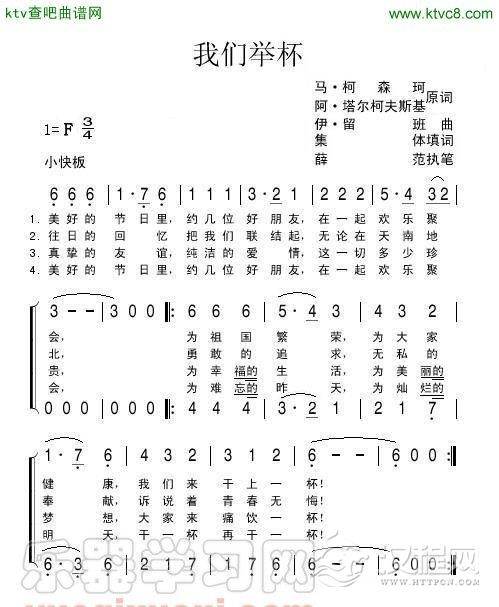 ktv查吧曲谱网 www.ktvc8.com
我们举杯
马·柯森珂
阿·塔尔柯夫斯基 原词
伊·留班曲
集体填词
薛范执笔
1=F 3/4
小快板
6 6 6 | 1·7 6 | 1 1 1 | 3·2 1 | 5·4 (32)
1. 美好的节日里,约几位好朋友,在一起欢乐聚
2. 往日的回忆把我们联结起,无论在天南地
3. 真挚的友谊,纯洁的爱情,这一切多少珍
4. 美好的节日里,约几位好朋友,在一起欢乐聚
3 - - | 3 0 0 |: 6 6 6 | 5·4 3 | 4 3 2 |
会,为祖国繁荣,为大家
北,勇敢的追求,无私的
贵,为幸福的生活,为美丽的
会,为难忘的昨天,为灿烂的
0 0 0 | 0 0 0 |: 4 4 4 | 3·2 1 | 2 1 7 |
1·7 6 | 4 3 2 | 3 1 7 | 6 - - | 6 0 0 :|
健康,我们来干上一杯!
奉献,诉说着青春无悔!
梦想,大家来痛饮一杯!
明天,干一杯再干一杯!
乐器学习网
HTTPCN.COM